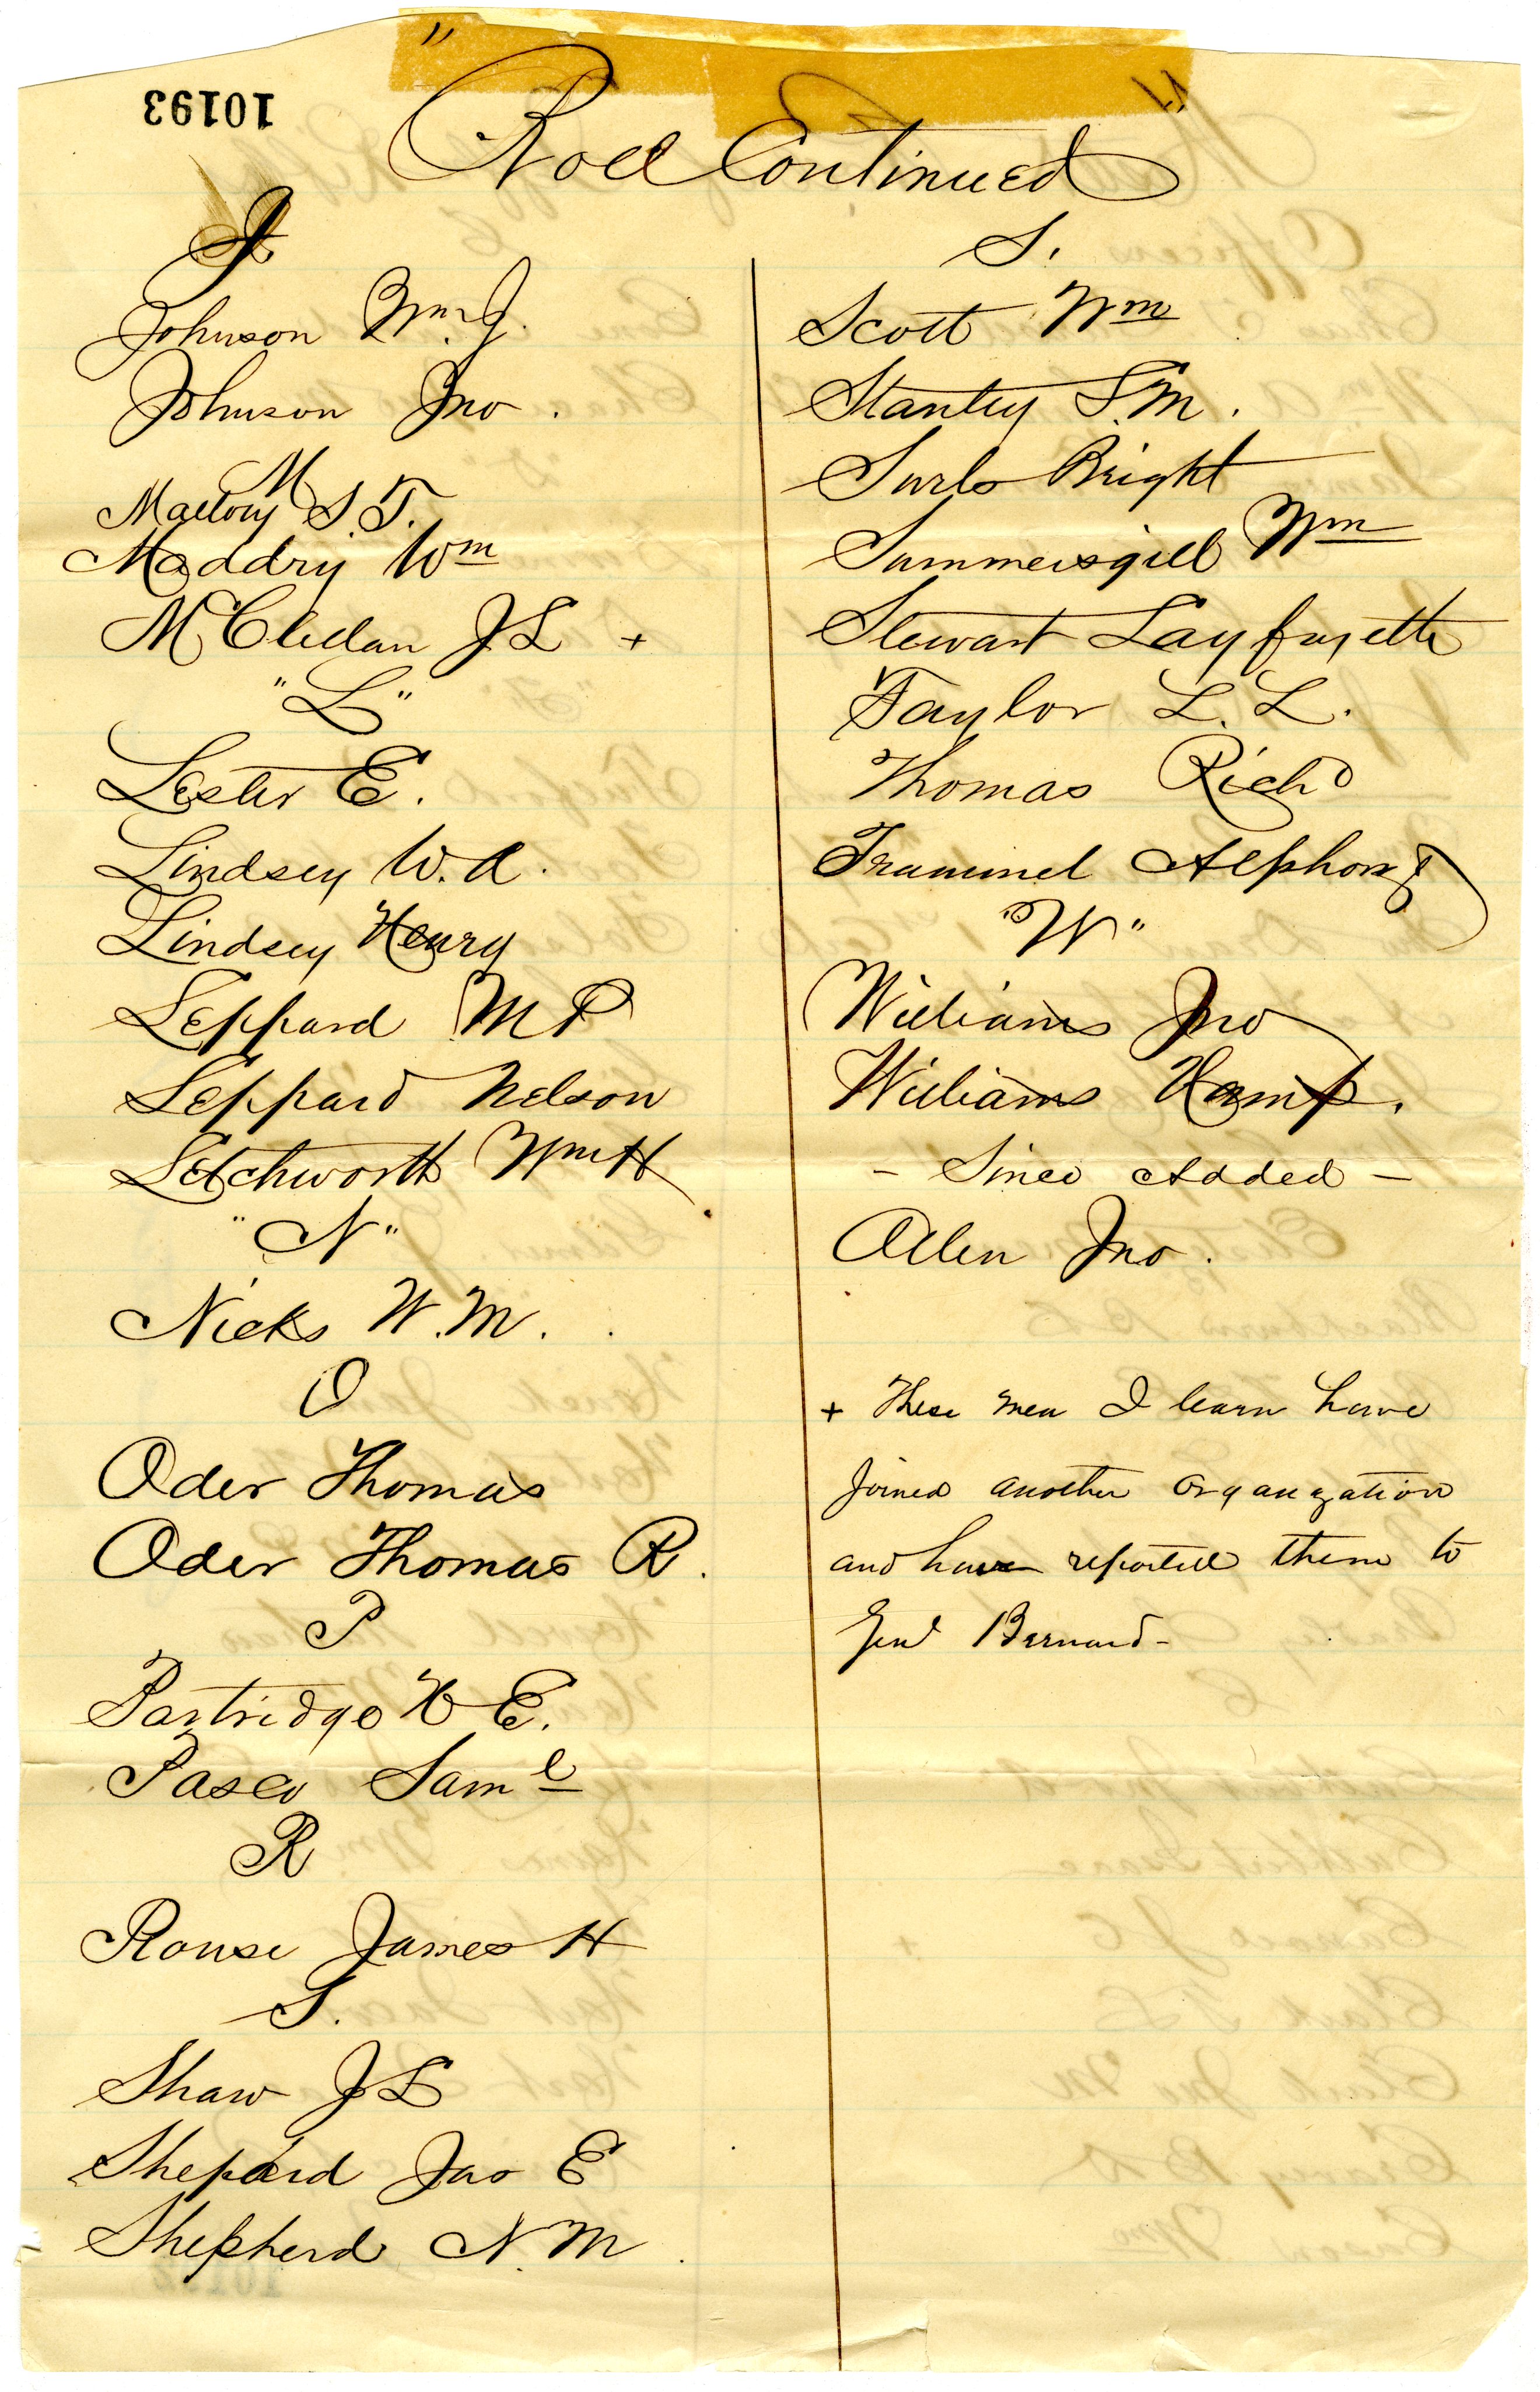 10193
"Roll Continued"
J
Johnson Wm J.
Johnson Jno.
M
Mallory S. T.
Maddry Wm
McClellan J L +
"L"
Lester E.
Lindsey W. A.
Lindsey Henry
Leppard M P
Leppard Nelson
Letchworth Wm H
"N"
Nicks W. M.
O
Oder Thomas
Oder Thomas R.
P
Partridge H E.
Pasco Saml
R
Rouse James H
S.
Shaw J L
Shepard Jno E
Shepherd N. M.
S.
Scott Wm
Stanley S. M.
Surls Bright
Summersgill Wm
Stewart Layfayette
Taylor L. L.
Thomas Richd
Trammel Alphons
"W"
Williams Jno
Williams Hamp.
- Since Added -
Allen Jno.
+ These men I learn have
joined another organization
and have reported them to
Genl Bernard -